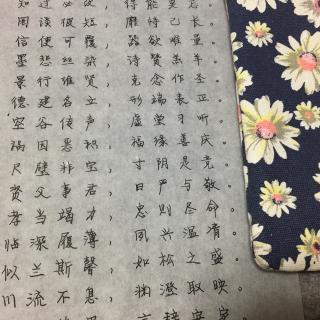 知过必改，得能莫忘。
罔谈彼短，靡恃己长。
信使可覆，器欲难量。
墨悲丝染，诗赞羔羊。
景行维贤，克念作圣。
德建名立，形端表正。
空谷传声，虚堂习听。
祸因恶积，福缘善庆。
尺璧非宝，寸阴是竞。
资父事君，曰严与敬。
孝当竭力，忠则尽命。
临深履薄，夙兴温凊。
似兰斯馨，如松之盛。
川流不息，渊澄取映。
言辞安定